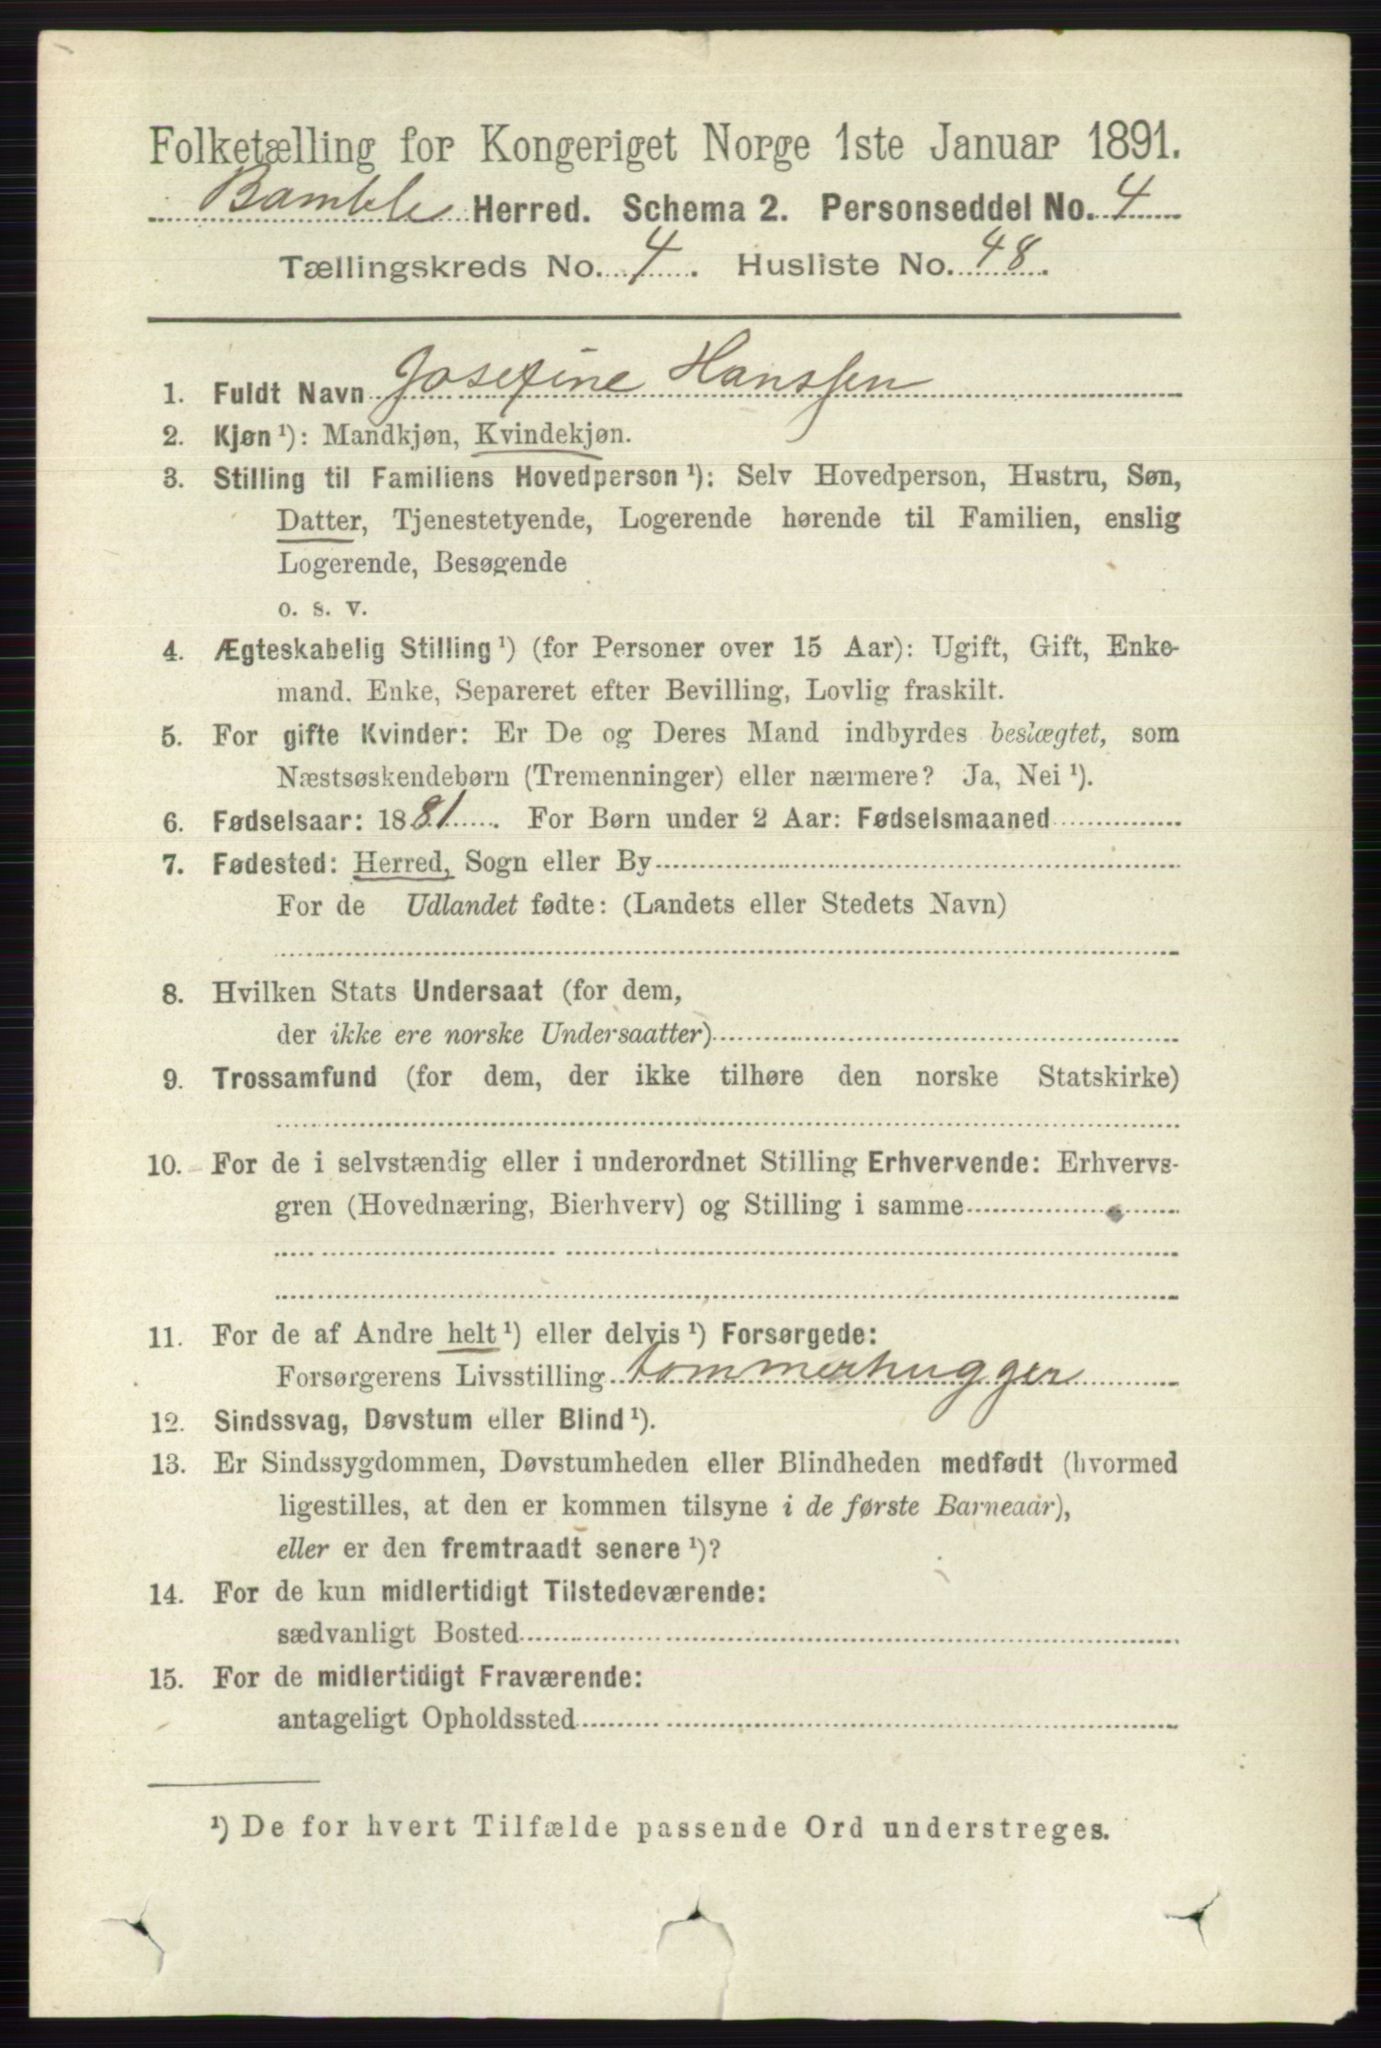 Folketælling for Kongeriget Norge 1ste Januar 1891.
Bamble Herred. Schema 2. Personseddel No. 4
Tællingskreds No. 4. Husliste No. 48.
1. Fuldt Navn Josefine Hanssen
2. Kjøn ¹): Mandkjøn, Kvindekjøn.
3. Stilling til Familiens Hovedperson ¹): Selv Hovedperson, Hustru, Søn,
Datter, Tjenestetyende, Logerende hørende til Familien, enslig
Logerende, Besøgende
o. s. v.
4. Ægteskabelig Stilling ¹) (for Personer over 15 Aar): Ugift, Gift, Enke-
mand, Enke, Separeret efter Bevilling, Lovlig fraskilt.
5. For gifte Kvinder: Er De og Deres Mand indbyrdes beslægtet, som
Næstsøskendebørn (Tremenninger) eller nærmere? Ja, Nei ¹).
6. Fødselsaar: 1881. For Børn under 2 Aar: Fødselsmaaned
7. Fødested: Herred, Sogn eller By
For de Udlandet fødte: (Landets eller Stedets Navn)
8. Hvilken Stats Undersaat (for dem,
der ikke ere norske Undersaatter)
9. Trossamfund (for dem, der ikke tilhøre den norske Statskirke)
10. For de i selvstændig eller i underordnet Stilling Erhvervende: Erhvervs-
gren (Hovednæring, Bierhverv) og Stilling i samme
11. For de af Andre helt ¹) eller delvis ¹) Forsørgede:
Forsørgerens Livsstilling tommerhugger
12. Sindssvag, Døvstum eller Blind ¹).
13. Er Sindssygdommen, Døvstumheden eller Blindheden medfødt (hvormed
ligestilles, at den er kommen tilsyne i de første Barneaar),
eller er den fremtraadt senere ¹)?
14. For de kun midlertidigt Tilstedeværende:
sædvanligt Bosted
15. For de midlertidigt Fraværende:
antageligt Opholdssted
¹) De for hvert Tilfælde passende Ord understreges.